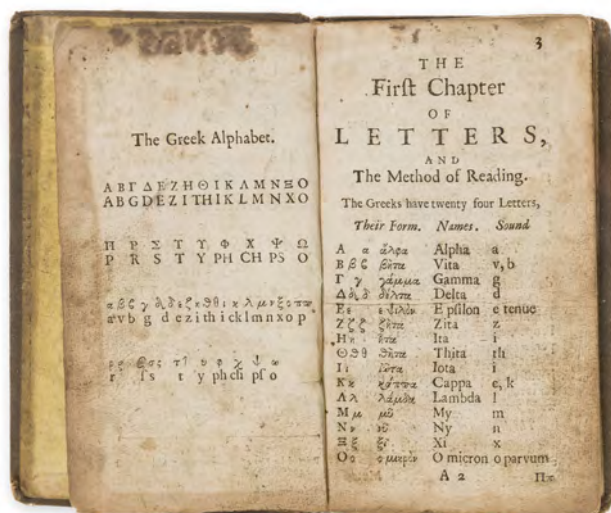 The Greek Alphabet.
Α Β Γ Δ Ε Ζ Η Θ Ι Κ Λ Μ Ν Ξ Ο
A B G D E Z I TH I K L M N X O
Π Ρ Σ Τ Υ Φ Χ Ψ Ω
P R S T Y PH CH PS O
α β ϐ γ δ ε ζ η ϑ θ ι κ λ μ ν ξ ο π
a v b g d e z i th i c k l m n x o p
τ υ φ χ ψ ω
r ſs t y ph ch pſ o
3
THE
Firſt Chapter
OF
LETTERS,
AND
The Method of Reading.
The Greeks have twenty four Letters,
Their Form. Names. Sound
Α α ἄλφα Alpha a
Β β ϐ βῆτα Vita v, b
Γ γ γάμμα Gamma g
Δ δ δέλτα Delta d
Ε ε ἐψιλὸν Epſilon e tenue
Ζ ζ ζῆτα Zita z
Η η ἦτα Ita i
Θ ϑ θ ϑῆτα Thita th
Ι ι ἰῶτα Iota i
Κ κ κάππα Cappa c, k
Λ λ λάμβδα Lambda l
Μ μ μῦ My m
Ν ν νῦ Ny n
Ξ ξ ξῖ Xi x
Ο ο ὀμικρὸν O micron o parvum
A 2